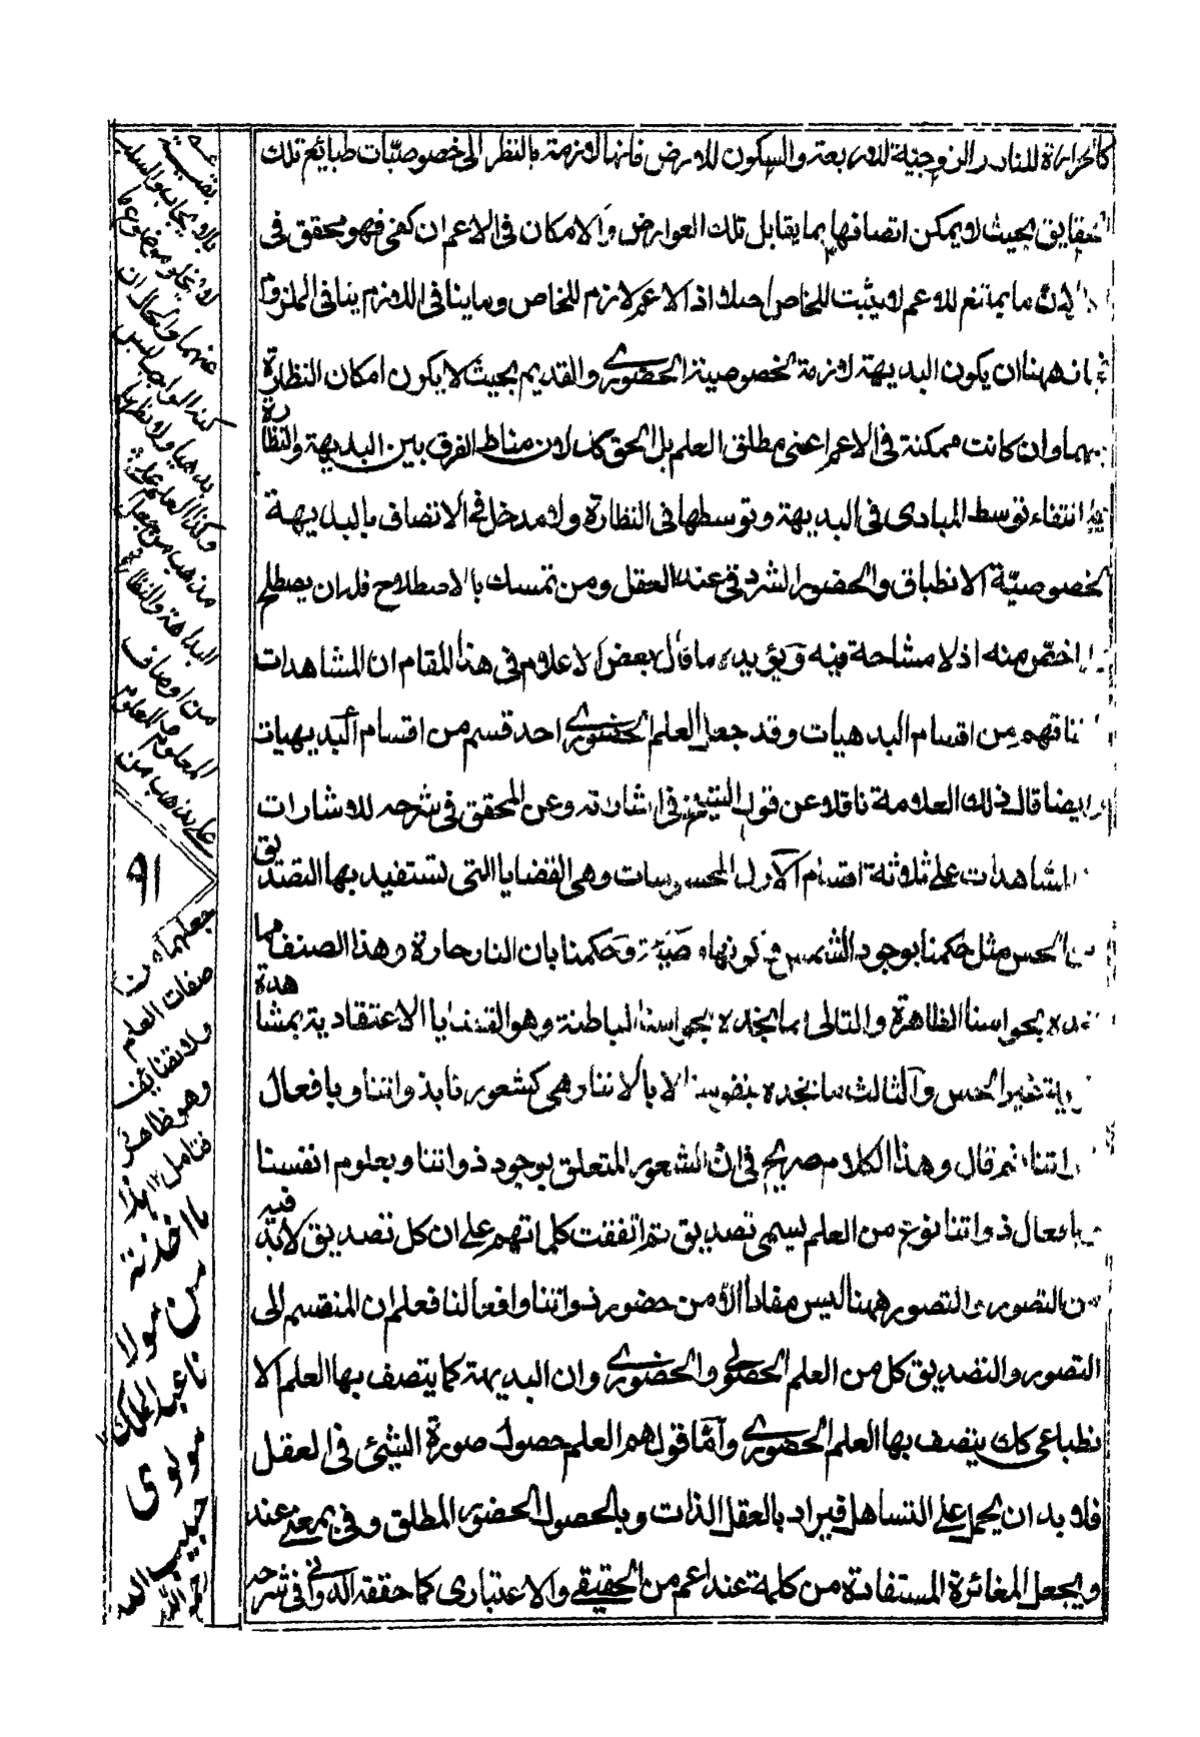 كالحرارة للنار والزوجية للاربعة والسكون للارض فانها لازمة بالنظر الى خصوصيّات طبائع تلك
بحيث لا يمكن اتصافها بما يقابل تلك العوارض والامكان فى الاعم ان كفى فهو يحقق فى
لان ما يمتنع للاعم لا يثبت للخاص اذ الاعم لازم للخاص وما ينافى اللازم ينافى الملزوم
ههنا ان يكون البديهة لازمة لخصوصية الحضورى والقديم بحيث لا يكون امكان النظارة
وان كانت ممكنة فى الاعم اعنى مطلق العلم بل الحق كك لان مناط الفرق بين البديهة والنظارة
انتفاء توسط المبادى فى البديهة وتوسطها فى النظارة ولا مدخل فى الاتصاف بالبديهة
لخصوصيّة الانطباق والحضور الشرقى عند العقل ومن تمسك بالاصطلاح فله ان يصطلح
اخص منه اذ لا مشاحة فيه ويؤيده ما قال بعض الاعلام فى هذا المقام ان المشاهدات
من اقسام البدهيات وقد جعل العلم الحضورى احد قسم من اقسام البديهيات
ايضا قال ذلك العلامة ناقلا عن قول الشيخ فى اشاراته وعن المحقق فى شرحه للاشارات
المشاهدات على ثلاثة اقسام الاول المحسوسات وهى القضايا التى تستفيد بها التصديق
من الحس مثل حكمنا بوجود الشمس وكونها مضيئة وحكمنا بان النار حارة وهذا الصنف مما
نجده بحواسنا الظاهرة والتالى ما نجده بحواسنا الباطنة وهو القضايا الاعتقادية بمشاهدة
غير الحس والثالث ما نجده بنفوسنا لا بالاتنا وهى كشعورنا بذواتنا وبافعال
ذواتنا ثم قال وهذا الكلام صريح فى ان الشعور المتعلق بوجود ذواتنا وبعلوم انفسنا
بافعال ذواتنا نوع من العلم يسمى تصديق ثم اتفقت كلماتهم على ان كل تصديق لا بد فيه
من التصور والتصور ههنا ليس مفادا الا من حضور ذواتنا وافعالنا فعلم ان المنقسم الى
التصور والتصديق كل من العلم الحصولى والحضورى وان البديهة كما يتصف بها العلم الا
نطباعى كك يتصف بها العلم الحضورى وأمّا قولهم العلم حصول صورة الشئ فى العقل
فلا بد ان يحمل على التساهل فيراد بالعقل الذات وبالحصول الحضور المطلق وفى بمعنى عند
ويجعل المغائرة المستفادة من كلمة عند اعم من الحقيقى والاعتبارى كما حققه الدوانى فى شرحه
بقية
بالايجاب والسلب
لا يخلو موضوع ما
عنهما والحال ان
كنه الواجب ليس
بدهيا ولا نظريا
وكذا العلم على
مذهب من جعل
البداهة والنظارة
من اوصاف
المعلوم المعلوم
على مذهب من
٩١
جعلهما من
صفات العلم
ولا تقايض
وهو ظاهر
فتامل ١٢ هذا
ما اخذته
من مولا
نا عبد الملك
مولوى
حبيب الله